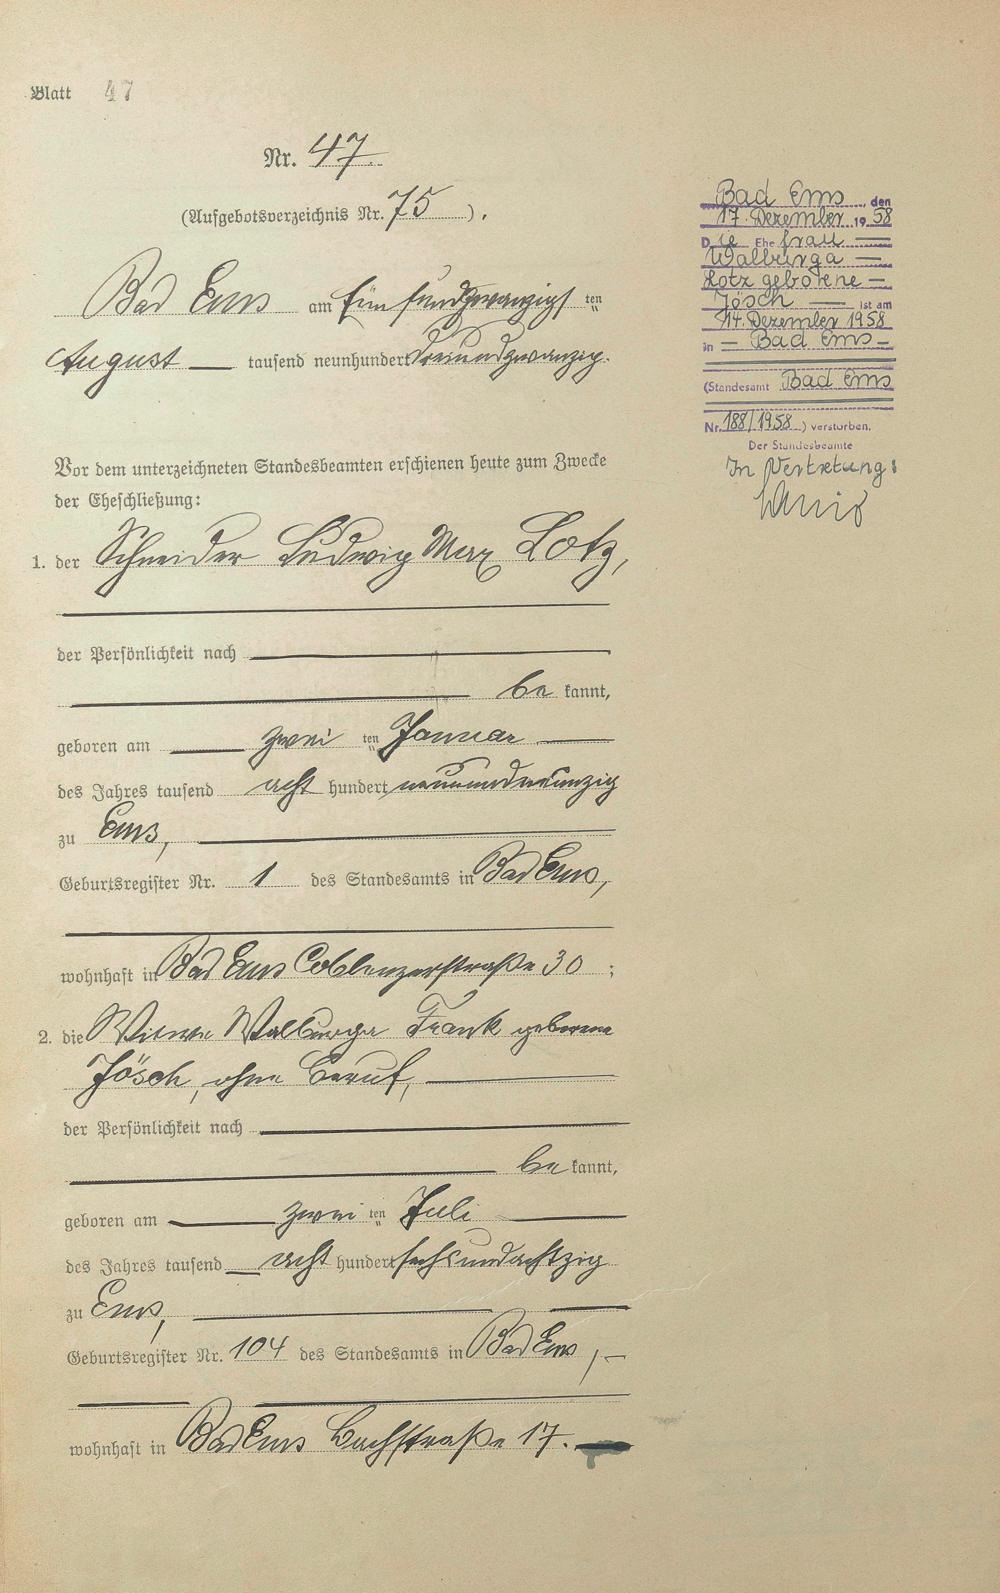 Blatt 47
Nr. 47.
(Aufgebotsverzeichnis Nr. 75).
Bad Ems am fünfundzwanzigsten
August tausend neunhundert dreiundzwanzig.
Vor dem unterzeichneten Standesbeamten erschienen heute zum Zwecke
der Eheschließung:
1. der Schneider Ludwig Max Lotz,
der Persönlichkeit nach
bekannt,
geboren am zweiten Januar
des Jahres tausend acht hundert neunundneunzig
zu Ems,
Geburtsregister Nr. 1 des Standesamts in Bad Ems,
wohnhaft in Bad Ems Coblenzerstraße 30;
2. die Witwe Walburga Frank geborene
Jösch, ohne Beruf,
der Persönlichkeit nach
bekannt,
geboren am zweiten Juli
des Jahres tausend acht hundert sechsundachtzig
zu Ems,
Geburtsregister Nr. 104 des Standesamts in Bad Ems,
wohnhaft in Bad Ems Bachstraße 17.
Bad Ems, den
17. Dezember 1958
Die Ehefrau
Walburga
Lotz geborene
Jösch ist am
14. Dezember 1958
in Bad Ems
(Standesamt Bad Ems
Nr. 188/1958) verstorben.
Der Standesbeamte
In Vertretung: